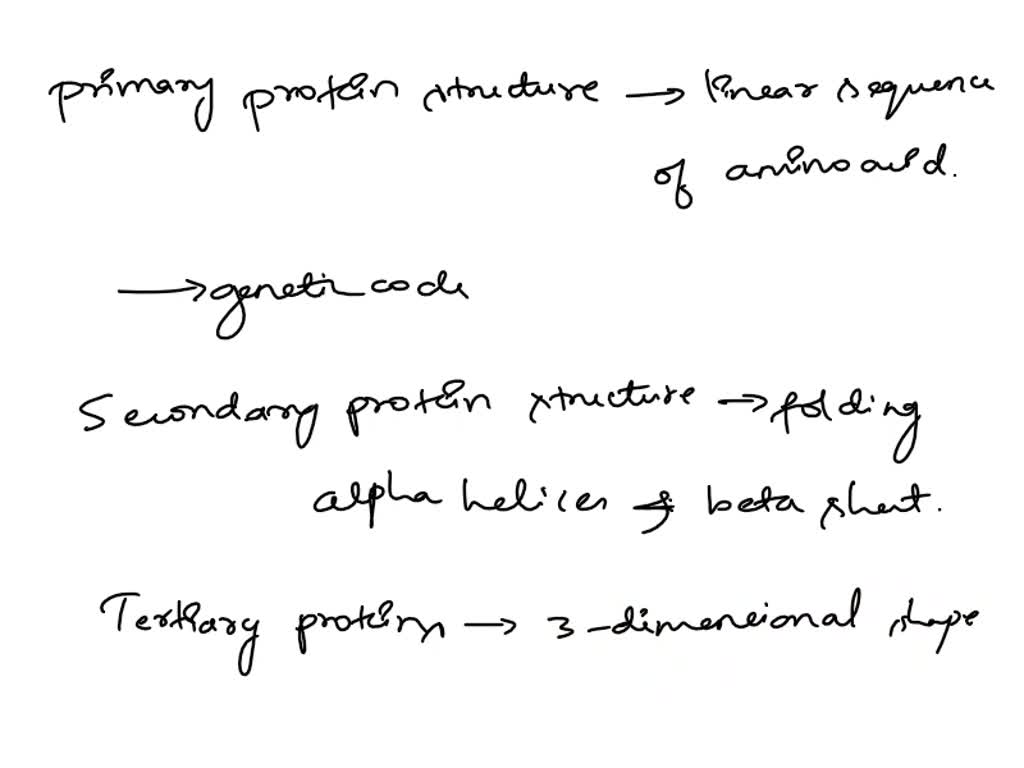 primary protein structure → linear sequence
of amino acid.
→ genetic code
Secondary protein structure → folding
alpha helices & beta sheet.
Tertiary proteins → 3-dimensional shape